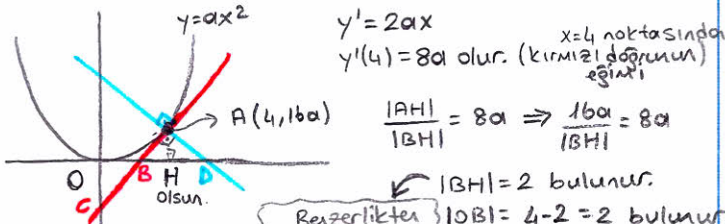 y=ax²
A(4,16a)
O B H D
olsun.
C
y'=2ax
x=4 noktasında
y'(4)=8a olur. (kırmızı doğrunun)
eğimi
|AH|/|BH| = 8a ⇒ 16a/|BH| = 8a
|BH|=2 bulunur.
Benzerlikten |OB|= 4-2=2 bulunur